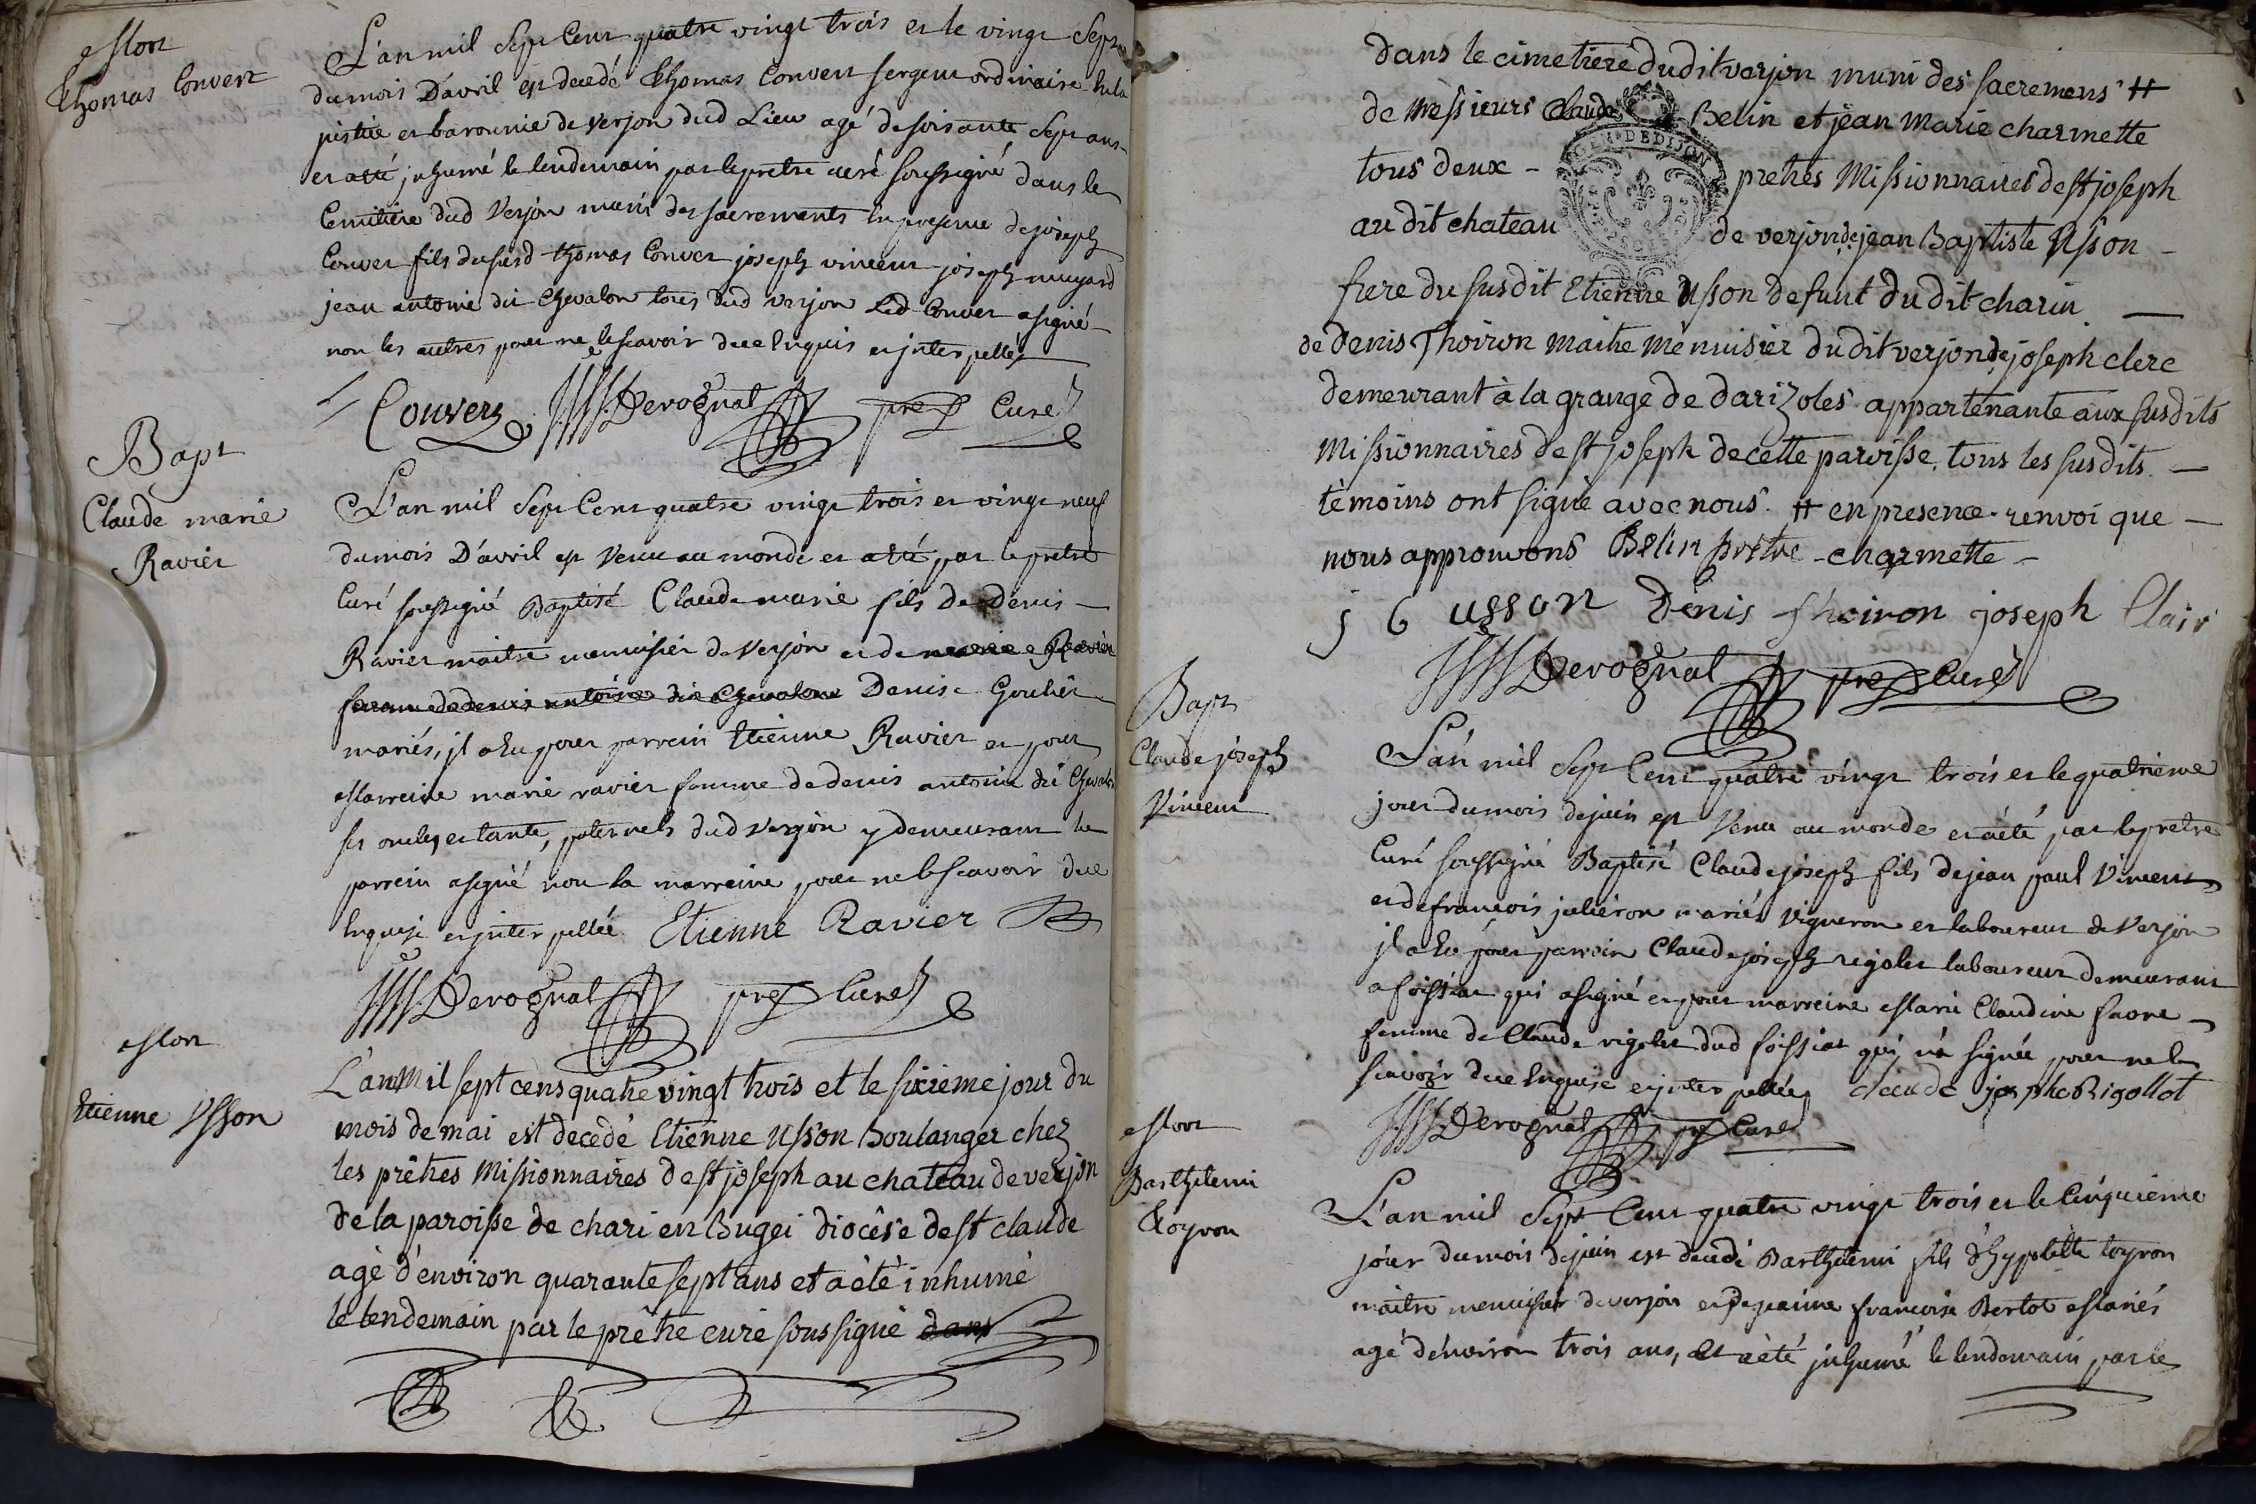 Mort
Thomas Convert
L'an mil Sept Cent quatre vingt trois et le vingt Sept
du mois D'avril est decedé Thomas Convert sergent ordinaire en la
justice et baronnie de Verjon dud Lieu agé de soixante Sept ans
et a eté inhumé le lendemain par le pretre curé soussigné dans le
Cemitière dud Verjon muni des sacrements en presence de joseph
Conver fils du susd thomas Conver joseph vincent joseph muyard
jean antoine dit Chevalon tous dud Verjon Led Conver a signé
non les autres pour ne le scavoir de ce Enquis et interpellés
Convers Derognat pre Curé
Bapt
Claude marie
Ravier
L'an mil Sept Cent quatre vingt trois et vingt neuf
du mois D'avril est Venu au monde et a eté par le pretre
Curé soussigné Baptisé Claude marie fils de Denis
Ravier maitre menuisier de Verjon et de marie Ravier
femme de denis antoine dit Chevalon Denise Goulier
mariés, il a Eu pour parrein Etienne Ravier et pour
Marreine marie ravier femme de denis antoine dit Chevalon
ses oncles et tante, paternels dud Verjon y demeurant le
parrein a signé non la marreine pour ne le scavoir de ce
Enquise et interpellée Etienne Ravier
Derognat pre Curé
Mort
Etienne Usson
L'an Mil sept cens quatre vingt trois et le sixieme jour du
mois de mai est decedé Etienne Usson Boulanger chez
les prêtres Missionnaires de st joseph au chateau de verjon
de la paroisse de chari en Bugei diocèse de st claude
agé d'environ quarante sept ans et a èté inhumè
le lendemain par le prêtre curé soussigné dans
dans le cimetiere du dit verjon muni des sacremens #
de messieurs Claude Belin et jean marie charmette
tous deux - prêtres Missionnaires de st joseph
au dit chateau de verjon, de jean Baptiste Usson -
frere du susdit Etienne Usson defunt du dit charin -
de Denis Thoiron maitre menuisier du dit verjon de joseph clerc
demeurant à la grange de darizoles appartenante aux susdits
Missionnaires de st joseph de cette paroisse, tous les susdits -
tèmoins ont signé avec nous. # en presence. renvoi que -
nous approuvons Belin prêtre - charmette -
j b usson Denis thoiron joseph Clair
Derognat pre Curé
GEN. DE DIJON
Bapt
Claude joseph
Vincent
L'an mil Sept Cent quatre vingt trois et le quatrieme
jour du mois de juin est Venu au monde et a eté par le pretre
Curé soussigné Baptisé Claude joseph fils de jean paul Vincent
et de francois julieron mariés Vigneron et laboureur de Verjon
il a Eu pour parrein Claude joseph rigolet laboureur demeurant
a foissiat qui a signé et pour marreine Marie Claudine favre
femme de Claude rigolet dud foissiat qui n'a signée pour ne le
scavoir de ce Enquise et interpellée claude josphe Rigollot
Derognat pre Curé
Mort
Barthelemi
Thoyron
L'an mil Sept Cent quatre vingt trois et le Cinquieme
jour du mois de juin est decedé Barthelemi fils d'hyppolitte toyron
maitre menuisier de verjon et de jeanne francoise Bertot Mariés
agé d'environ trois ans, Et a èté inhumé le lendemain par le